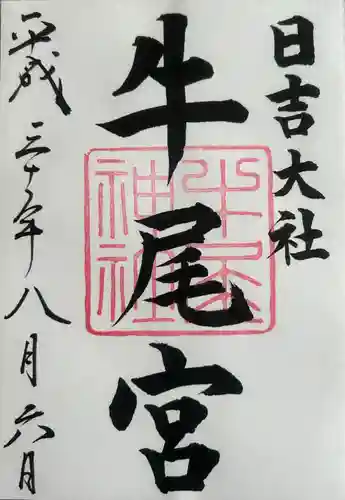 日吉大社
牛尾宮
牛尾神社
平成三十年八月六日